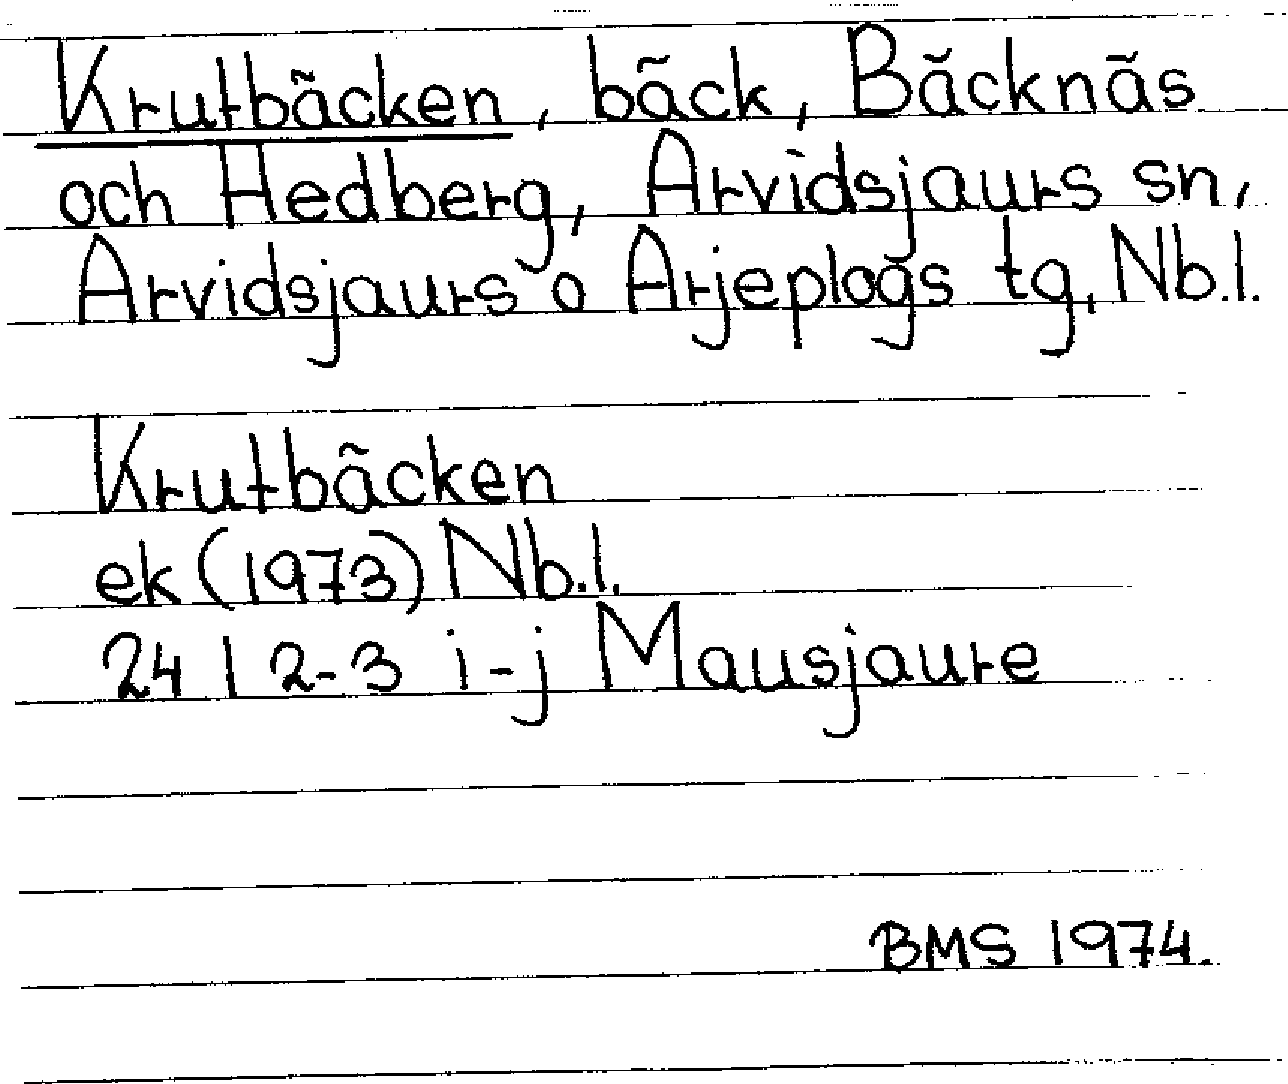 Krutbäcken, bäck, Bäcknäs
och Hedberg, Arvidsjaurs sn,
Arvidsjaurs o Arjeplogs tg, Nb.l.
Krutbäcken
ek (1973) Nb.l.
24 I 2-3 i-j Mausjaure
BMS 1974.